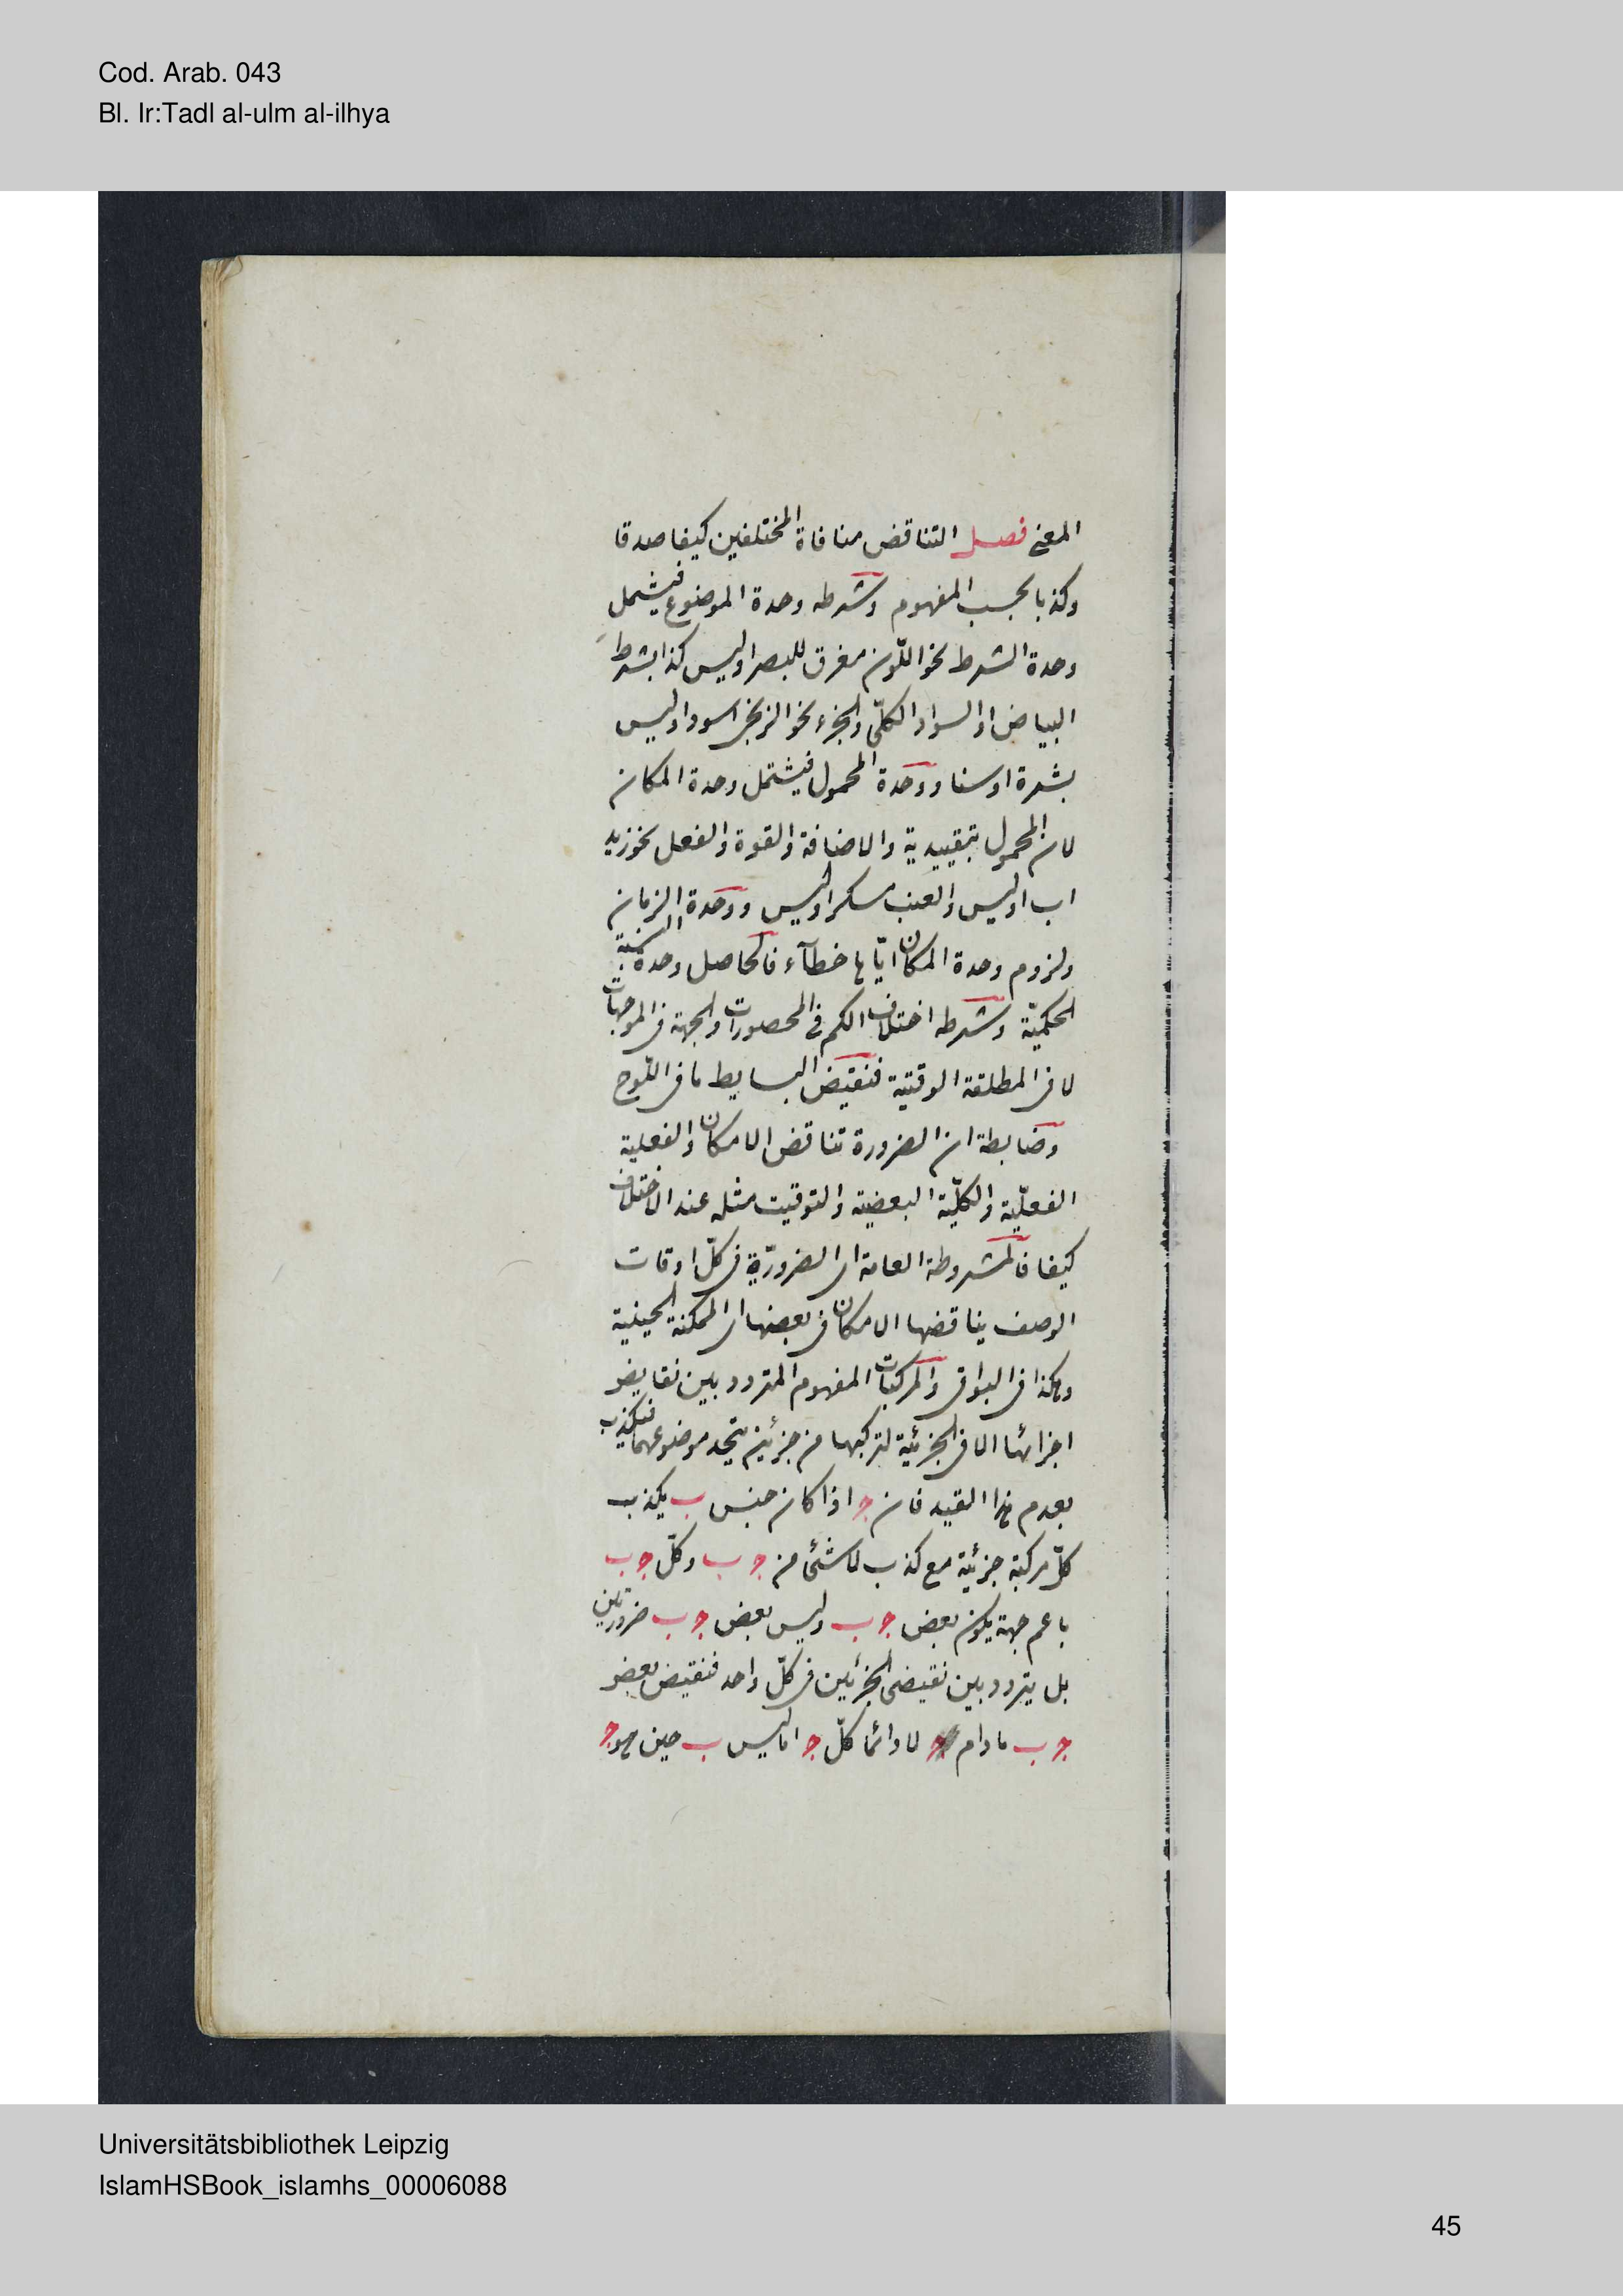 Cod. Arab. 043
Bl. Ir:Tadl al-ulm al-ilhya
المعنى فصل التناقض منافاة المختلفين كيفا صدقا
وكذبا بحسب المفهوم وشرطه وحدة الموضوع فيشمل
وحدة الشرط نحو اللّون مفرق للبصر اوليس كذا بشرط
البياض او السواد والكلّى والجزء نحو الزنجى اسود اوليس
بشرة اوسنا ووحدة المحمول فيشتمل وحدة المكان
لان المحمول بتقييدية والاضافة والقوة والفعل نحو زيد
اب اوليس والعنب مسكر اوليس ووحدة الزمان
ولزوم وحدة المكان ايّاها خطآء فالحاصل وحدة النسبة
الحكميّة وشرطه اختلاف الكم فى المحصورات والجهة فى الموجهات
لا فى المطلقة الوقتية فنقيض البسايط ما فى اللّوح
وضابطة ان الضرورة تناقض الامكان والفعلية
الفعلّية والكلّية البعضية والتوقيت مثله عند الاختلاف
كيفا فالمشروطة العامة اى الضروريّة فى كلّ اوقات
الوصف يناقضها الامكان فى بعضها اى الممكنة الحينية
وهكذا فى البواقى والمركبات المفهوم المتردد بين نقايض
اجزائها الا فى الجزئية لتركبها من جزئين يتحد موضوعهما فتكذب
بعدم هذا القيد فان ج اذا كان جنس ب يكذب
كلّ مركبة جزئية مع كذب لا شئ من ج ب وكلّ ج ب
باعم جهة يكون بعض ج ب وليس بعض ج ب ضروريتين
بل يتردد بين نقيضى الجزئين فى كلّ واحد فنقيض بعض
ج ب مادام ج لا دائما كلّ ج اما ليس ب حين هو ج
Universitätsbibliothek Leipzig
IslamHSBook_islamhs_00006088
45